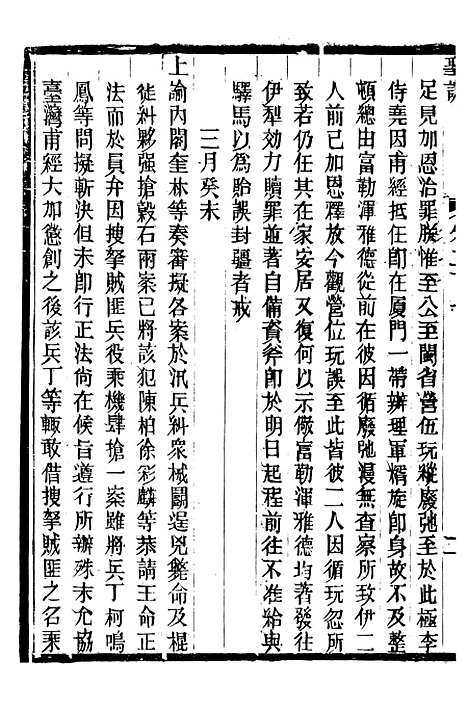 聖訓
足見加恩治罪朕惟至公至閩省營伍玩縱廢弛至於此極李
侍堯因甫經抵任卽在厦門一帶辦理軍糈旋卽身故不及整
頓總由富勒渾雅德從前在彼因循廢弛漫無查察所致伊二
人前已加恩釋放今觀營伍玩誤至此皆彼二人因循玩忽所
致若仍任其在家安居又復何以示儆富勒渾雅德均著發往
伊犁効力贖罪著自備資斧卽於明日起程前往不准給與
驛馬以爲貽誤封疆者戒
三月癸未
上諭內閣奎林等奏審擬各案於汛兵糾衆械鬭逞兇斃命及棍
徒糾夥强搶穀石兩案已將該犯陳柏徐彩麟等恭請王命正
法而於員弁因搜拏賊匪兵役乘機肆搶一案雖將兵丁柯鳴
鳳等問擬斬決但未卽行正法尙在候旨遵行所辦殊未允協
臺灣甫經大加懲創之後該兵丁等輒敢借搜拏賊匪之名乘